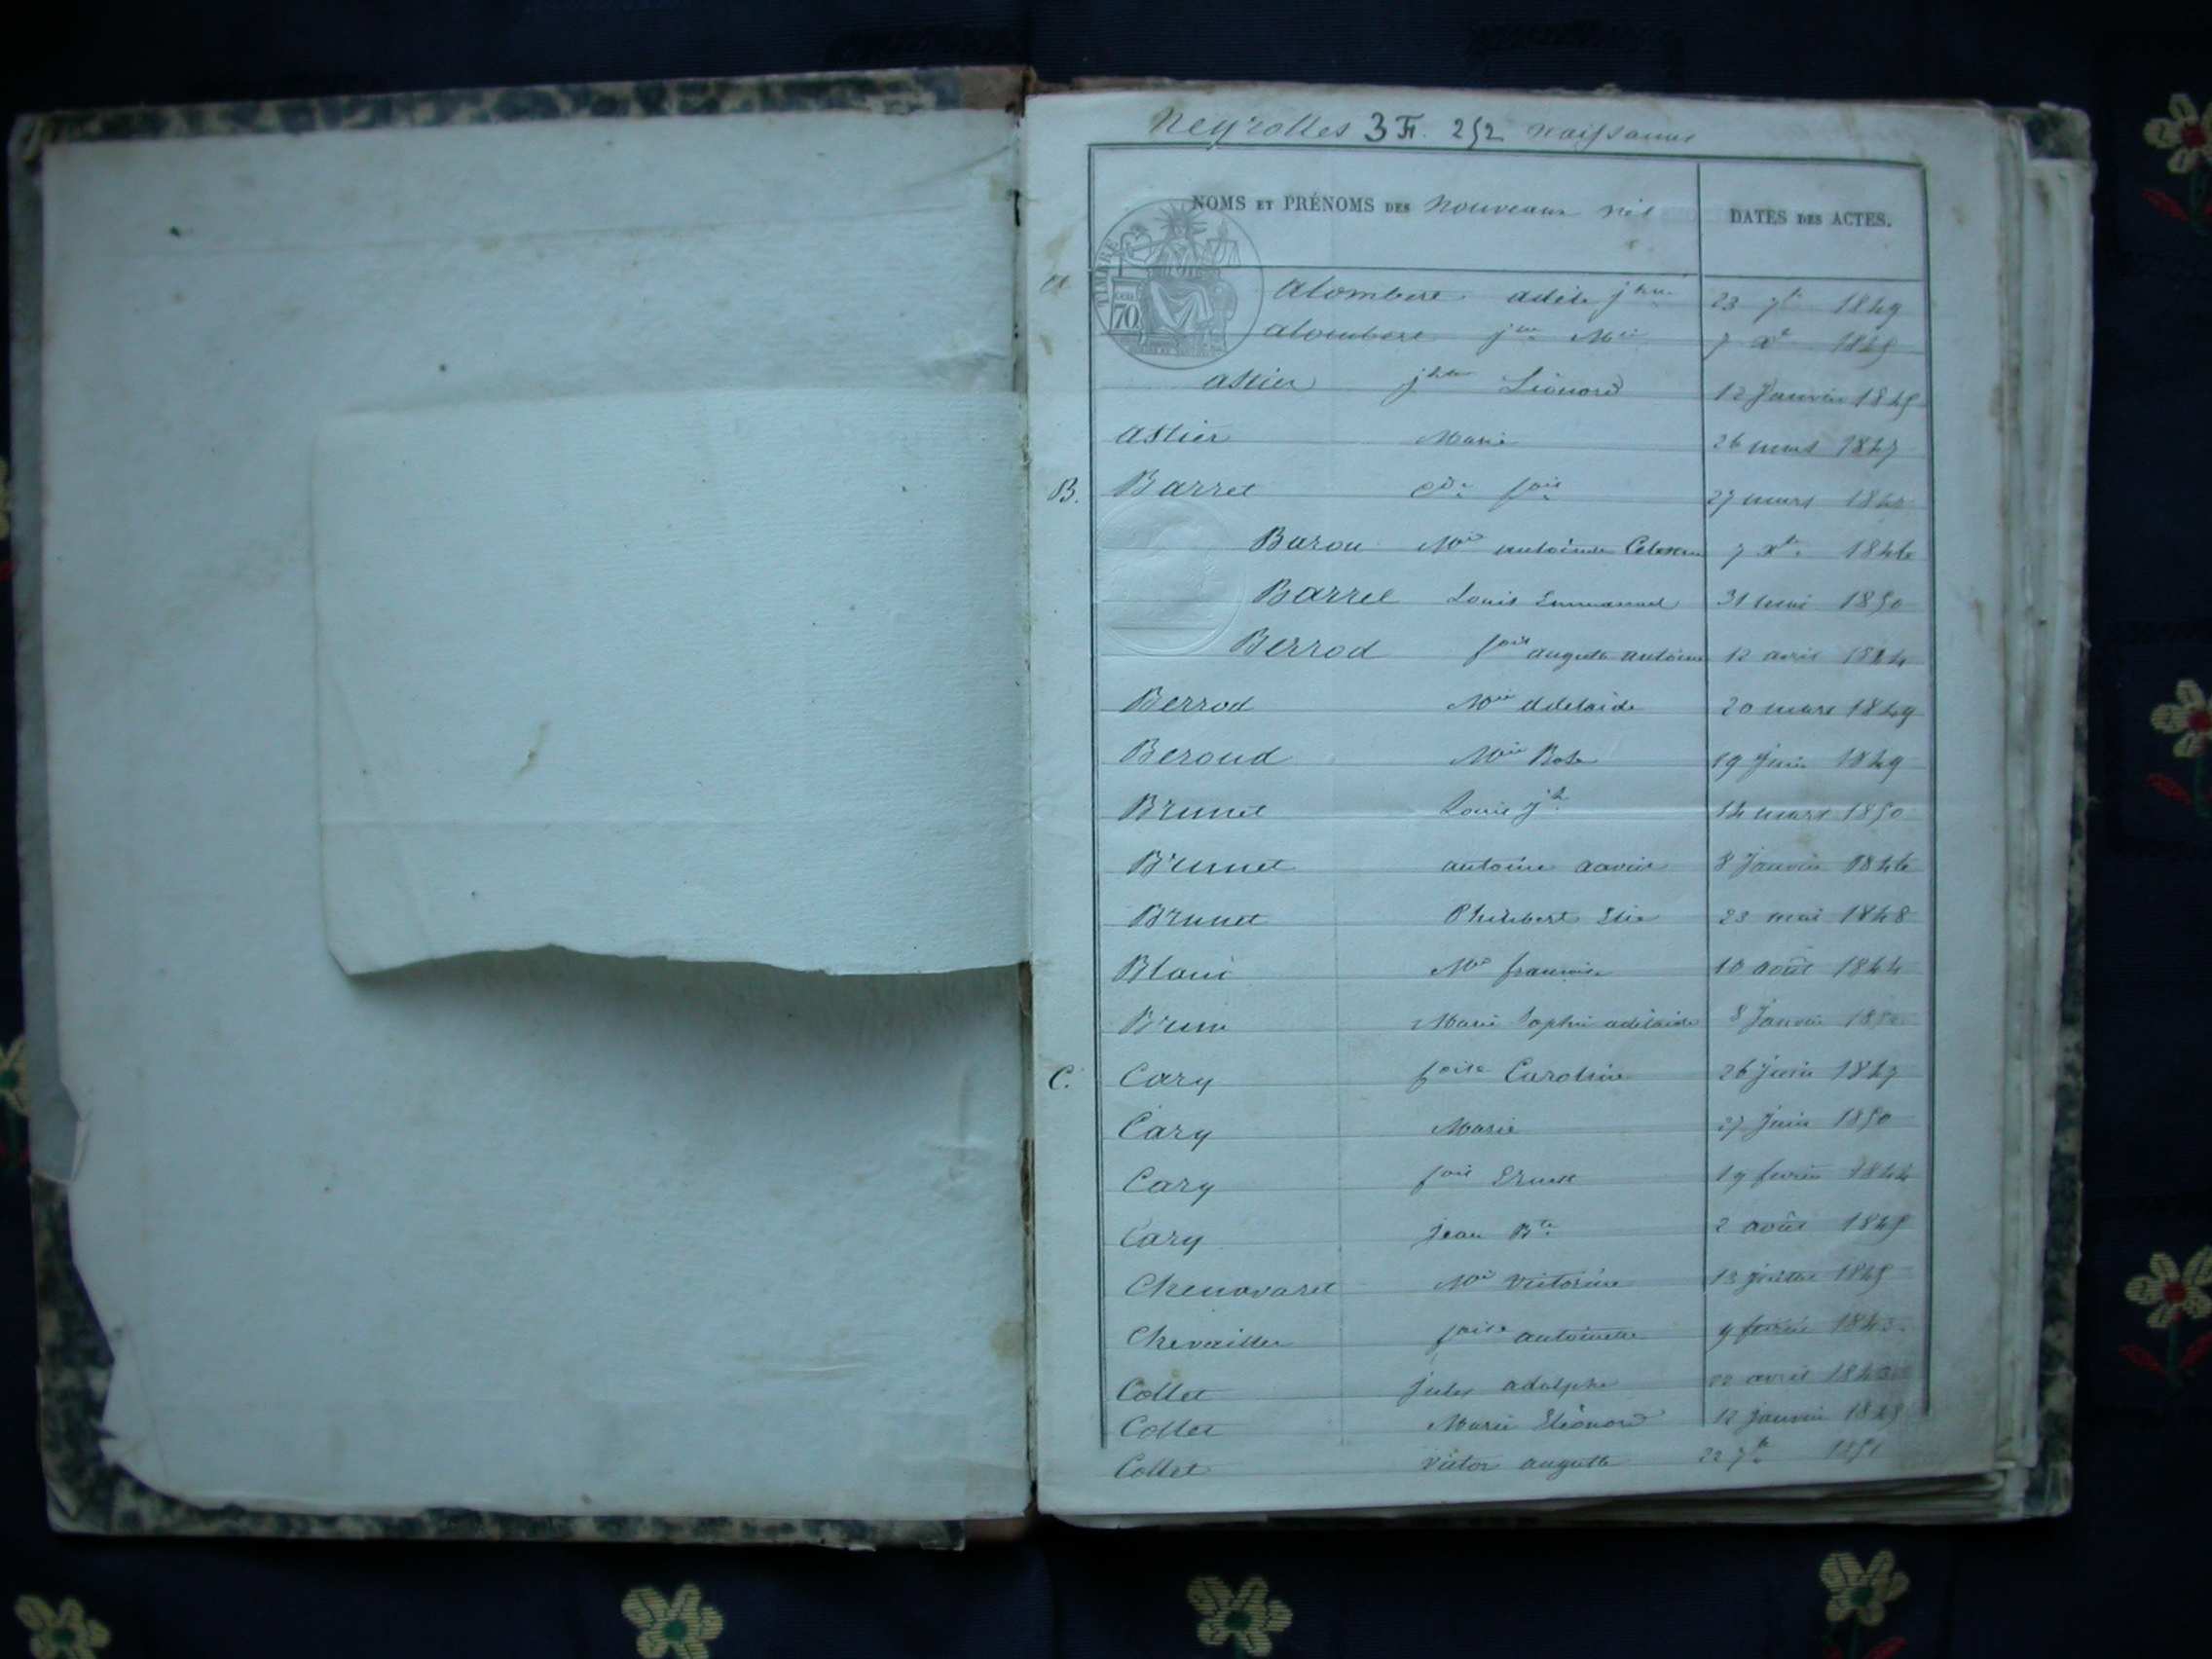 Neyrolles 3 Fr. 252 naissances
NOMS ET PRÉNOMS DES Nouveaux nés DATES DES ACTES.
TIMBRE
70
a Alombert adèle jhine 23 7bre 1849
Alombert Mie 7 Xe
astier jhte Léonard 12 Janvier 1845
astier Marie 26 mars 1847
B. Barret fois 27 mars
Baron Mie antoinette 7 Xe 1846
Barrel Louis Emmanuel 31 mai 1850
Berrod fois auguste antoine 12 avril 1844
Berrod Mie adelaide 20 mars 1849
Beroud Mie Rose 19 Juin 1849
Brunet Louis jh 14 mars 1850
Brunet antoine 8 Janvier 1846
Brunet Philibert Elie 23 mai 1848
Blanc Mie francoise 10 août 1844
Brun Marie Sophie adélaide 8 Janvier
C. Cary foise Caroline 26 juin 1847
Cary Marie 27 Juin 1850
Cary fois Ernest 19 fevrier 1844
Cary Jean Bte 2 août 1845
Chenavaret Mie Victorine 13 juillet 1845
Chevailler foise antoinette 9 fevrier 1843
Collet jules adolphe avril 1843
Collet Marie Eléonord 12 janvier 1845
Collet Victor auguste 22 7bre 1851